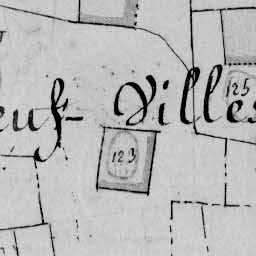 euf-Villes
125
123